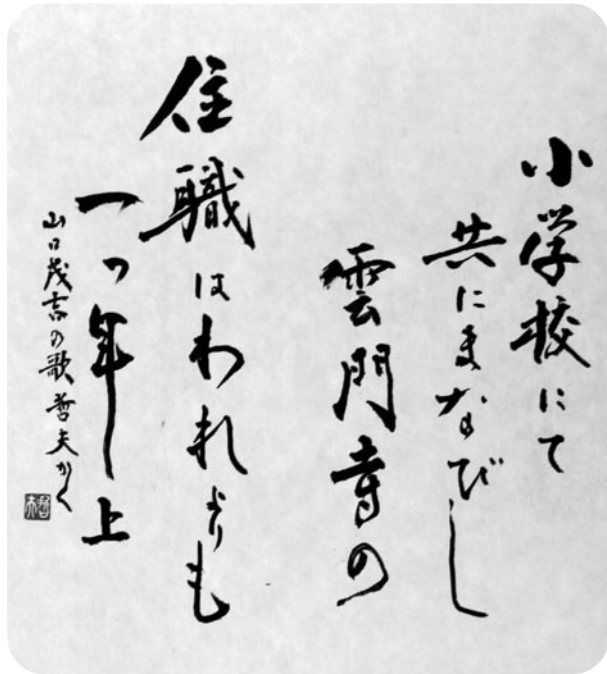 小学校にて
共にまなびし
雲門寺の
住職はわれよりも
一つ年上
山口茂吉の歌 哲夫かく